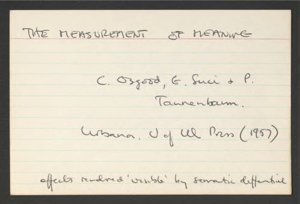 THE MEASUREMENT OF MEANING
C. Osgood, G. Suci & P.
Tannenbaum.
Urbana. U of Ill Press (1957)
effects rendered 'visible' by semantic differential